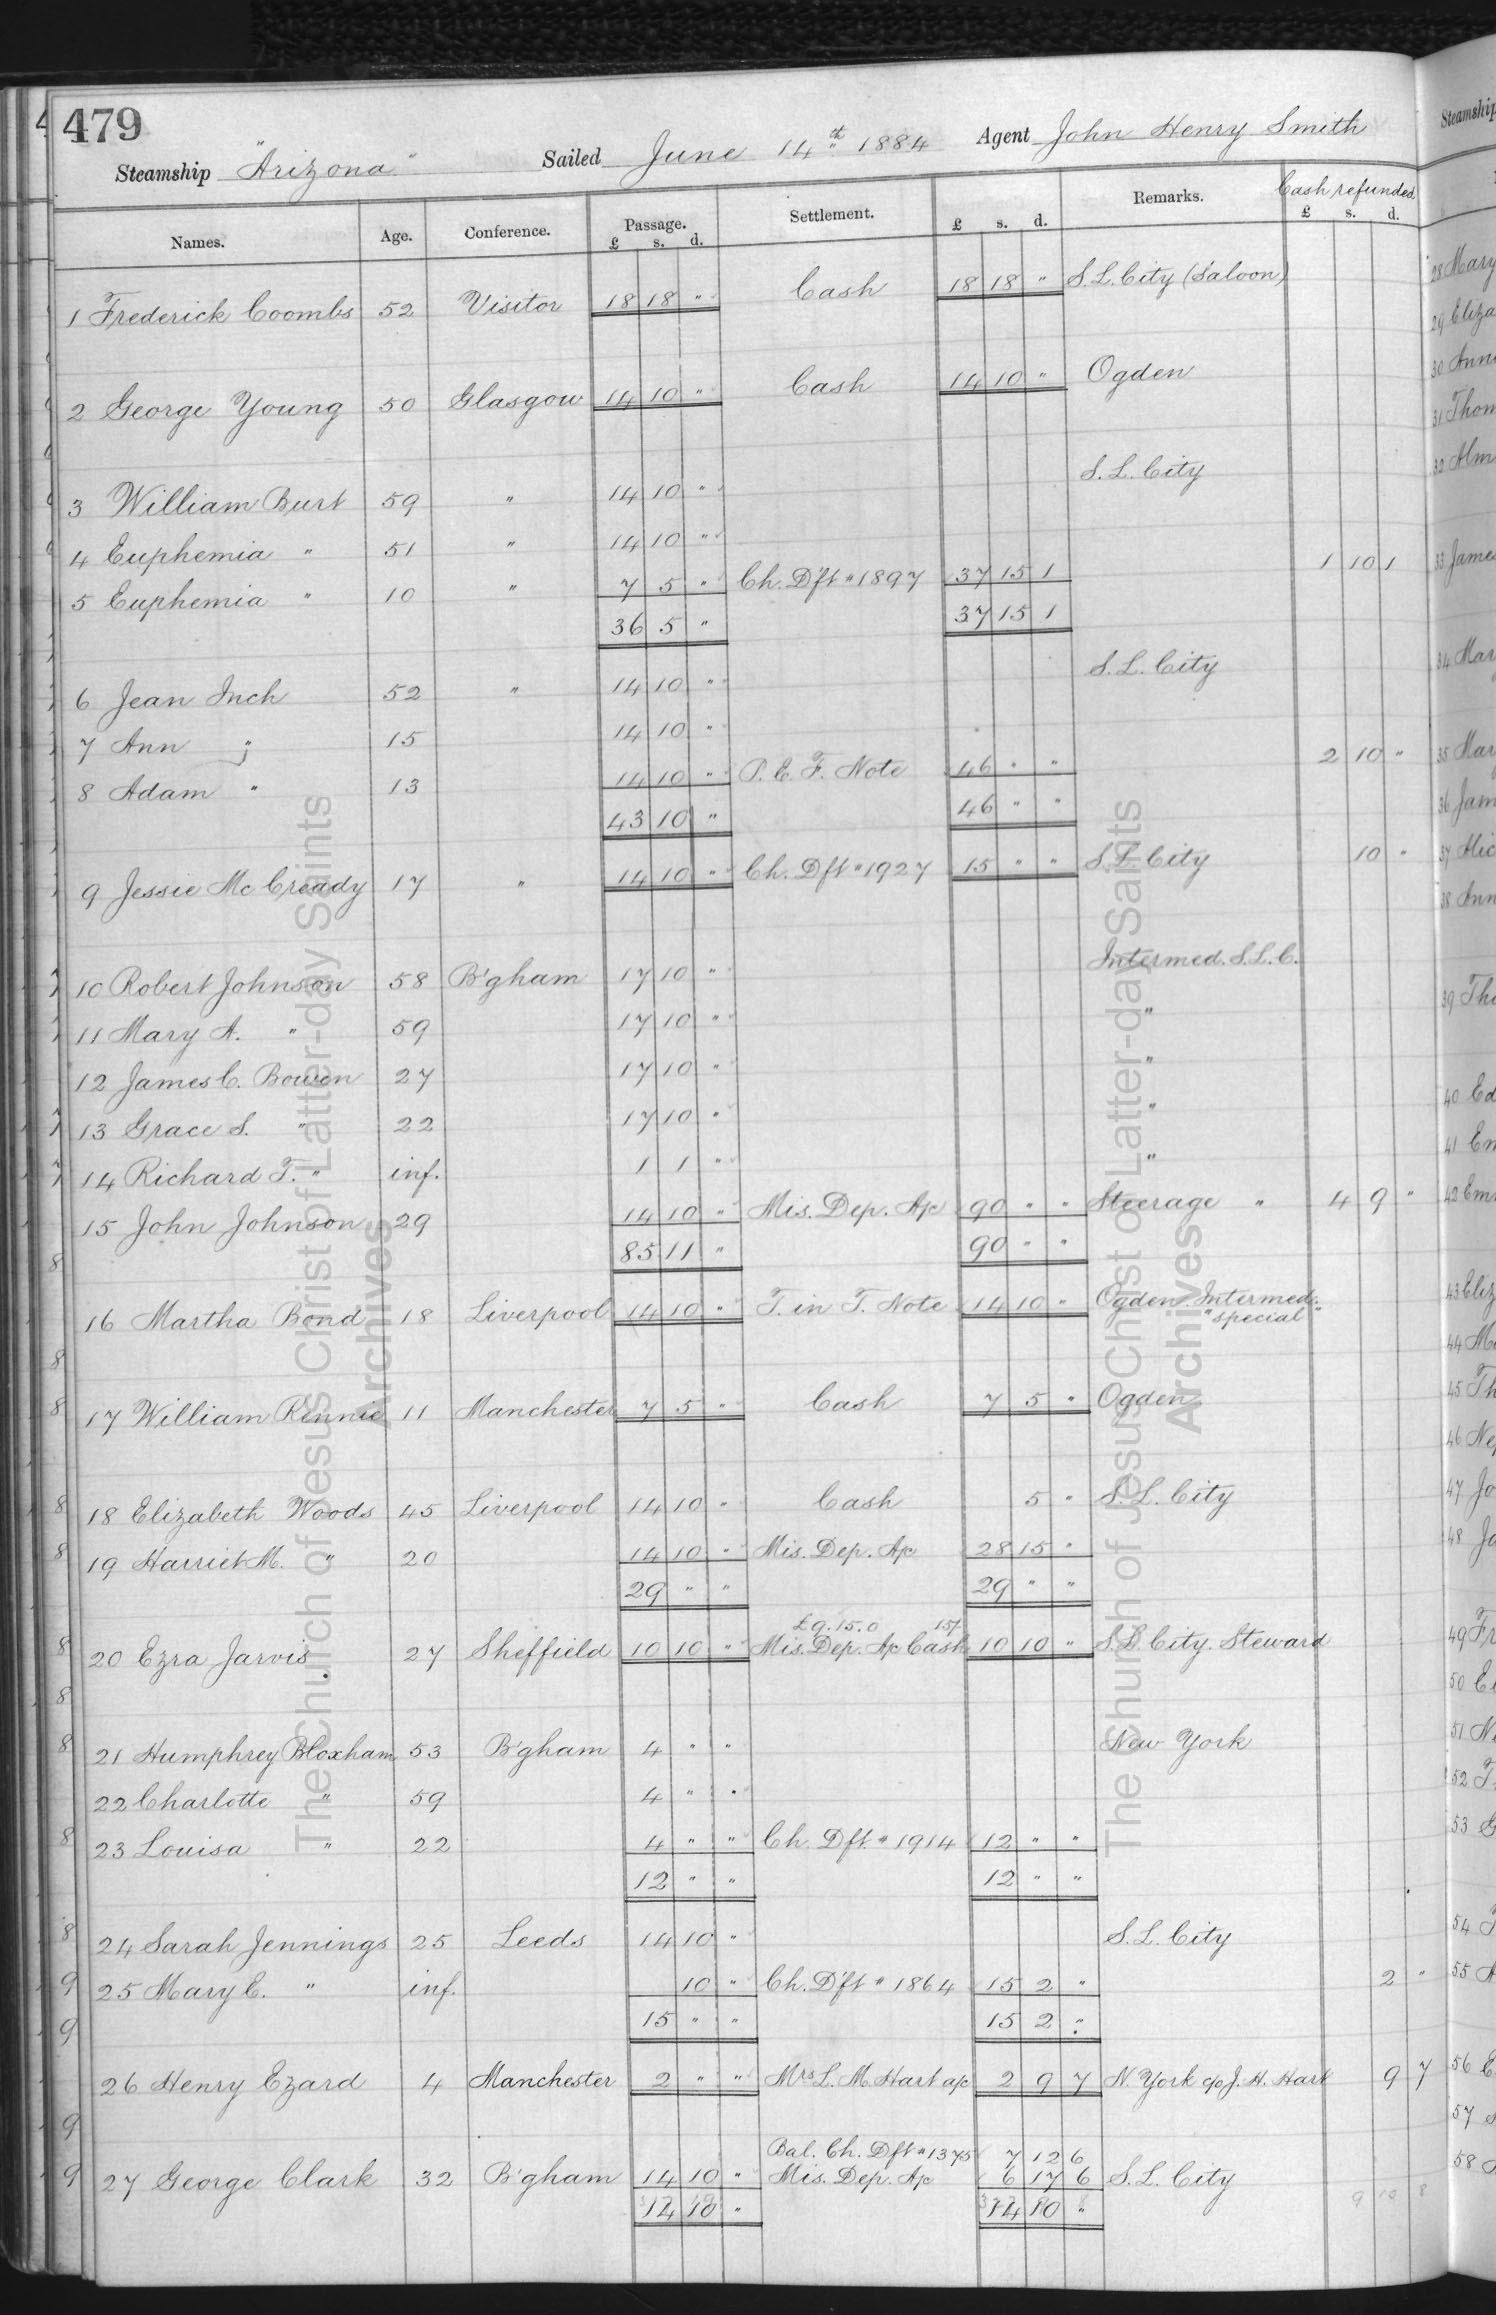 479
Steamship "Arizona" Sailed June 14th 1884 Agent John Henry Smith
Names. Age. Conference. Passage. £ s. d. Settlement. £ s. d. Remarks. Cash refunded £ s. d.
1 Frederick Coombs 52 Visitor 18 18 " Cash 18 18 " S. L. City (Saloon)
2 George Young 50 Glasgow 14 10 " Cash 14 10 " Ogden
3 William Burt 59 " 14 10 " S. L. City
4 Euphemia " 51 " 14 10 "
5 Euphemia " 10 " 7 5 " Ch. D'ft " 1897 37 15 1 1 10 1
36 5 " 37 15 1
6 Jean Inch 52 " 14 10 " S. L. City
7 Ann " 15 14 10 "
8 Adam " 13 14 10 " P. E. F. Note 46 " " 2 10 "
43 10 " 46 " "
9 Jessie McCready 17 " 14 10 " Ch. Dft " 1927 15 " " S. L. City 10 "
10 Robert Johnson 58 B'gham 17 10 " Intermed. S. L. C.
11 Mary A. " 59 17 10 " "
12 James C. Bowen 27 17 10 " "
13 Grace S. " 22 17 10 " "
14 Richard T. " inf. 1 1 " "
15 John Johnson 29 14 10 " Mis. Dep. A/c 90 " " Steerage " 4 9 "
85 11 " 90 " "
16 Martha Bond 18 Liverpool 14 10 " T. in T. Note 14 10 " Ogden. Intermed. "special"
17 William Rennie 11 Manchester 7 5 " Cash 7 5 " Ogden
18 Elizabeth Woods 45 Liverpool 14 10 " Cash 5 " S. L. City
19 Harriet M. " 20 14 10 " Mis. Dep. A/c 28 15 "
29 " " 29 " "
£9. 15. 0 15/-
20 Ezra Jarvis 27 Sheffield 10 10 " Mis. Dep. A/c Cash 10 10 " S. L. City. Steward
21 Humphrey Bloxham 53 B'gham 4 " " New York
22 Charlotte " 59 4 " "
23 Louisa " 22 4 " " Ch. Dft. " 1914 12 " "
12 " " 12 " "
24 Sarah Jennings 25 Leeds 14 10 " S. L. City
25 Mary C. " inf. 10 " Ch. D'ft " 1864 15 2 " 2 "
15 " " 15 2 "
26 Henry Ezard 4 Manchester 2 " " Mrs L. M. Hart a/c 2 9 7 N. York c/o J. H. Hart 9 7
Bal. Ch. Dft " 1375 7 12 6
27 George Clark 32 B'gham 14 10 " Mis. Dep. A/c 6 17 6 S. L. City
14 10 " 14 10 "
9 10 8
The Church of Jesus Christ of Latter-day Saints
Archives
The Church of Jesus Christ of Latter-day Saints
Archives
Steamship
28 Mary
29 Eliza
30 Ann
31 Thom
32 Alm
33 James
34 Mar
35 Mar
36 Jam
37 Mic
38 Ann
39 Tho
40 Ed
41 Em
42 Em
43 Eliz
44 Ma
45 Th
46 Ne
47 Jo
48 Ja
49 Fr
50
51
52
53
54
55
56
57
58